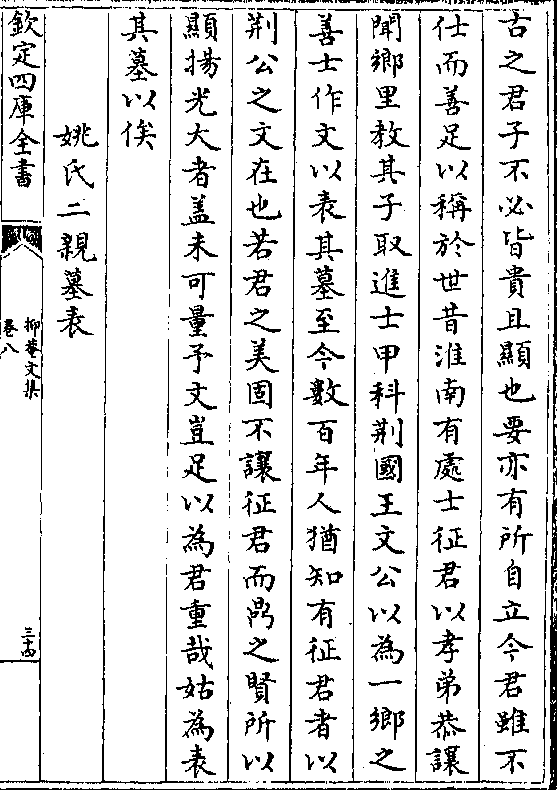 古之君子不必皆貴且顯也要亦有所自立今君雖不
仕而善足以稱於世昔淮南有處士征君以孝弟恭讓
聞鄉里教其子取進士甲科荆國王文公以為一鄉之
善士作文以表其墓至今數百年人猶知有征君者以
荆公之文在也若君之美固不讓征君而鼎之賢所以
顯揚光大者盖未可量予文豈足以為君重哉姑為表
其墓以俟
姚氏二親墓表
欽定四庫全書
抑菴文集
卷八
三十四